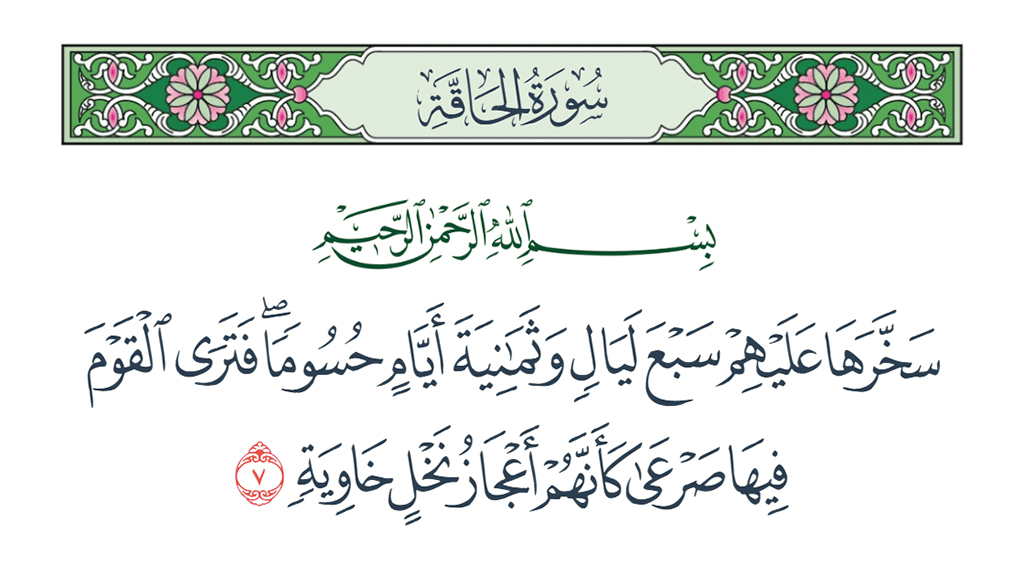 سُورَةُ الحَاقَّةِ
بِسْمِ ٱللَّهِ ٱلرَّحْمَٰنِ ٱلرَّحِيمِ
سَخَّرَهَا عَلَيْهِمْ سَبْعَ لَيَالٍ وَثَمَٰنِيَةَ أَيَّامٍ حُسُومًا ۖ فَتَرَى ٱلْقَوْمَ
فِيهَا صَرْعَىٰ كَأَنَّهُمْ أَعْجَازُ نَخْلٍ خَاوِيَةٍ ٧